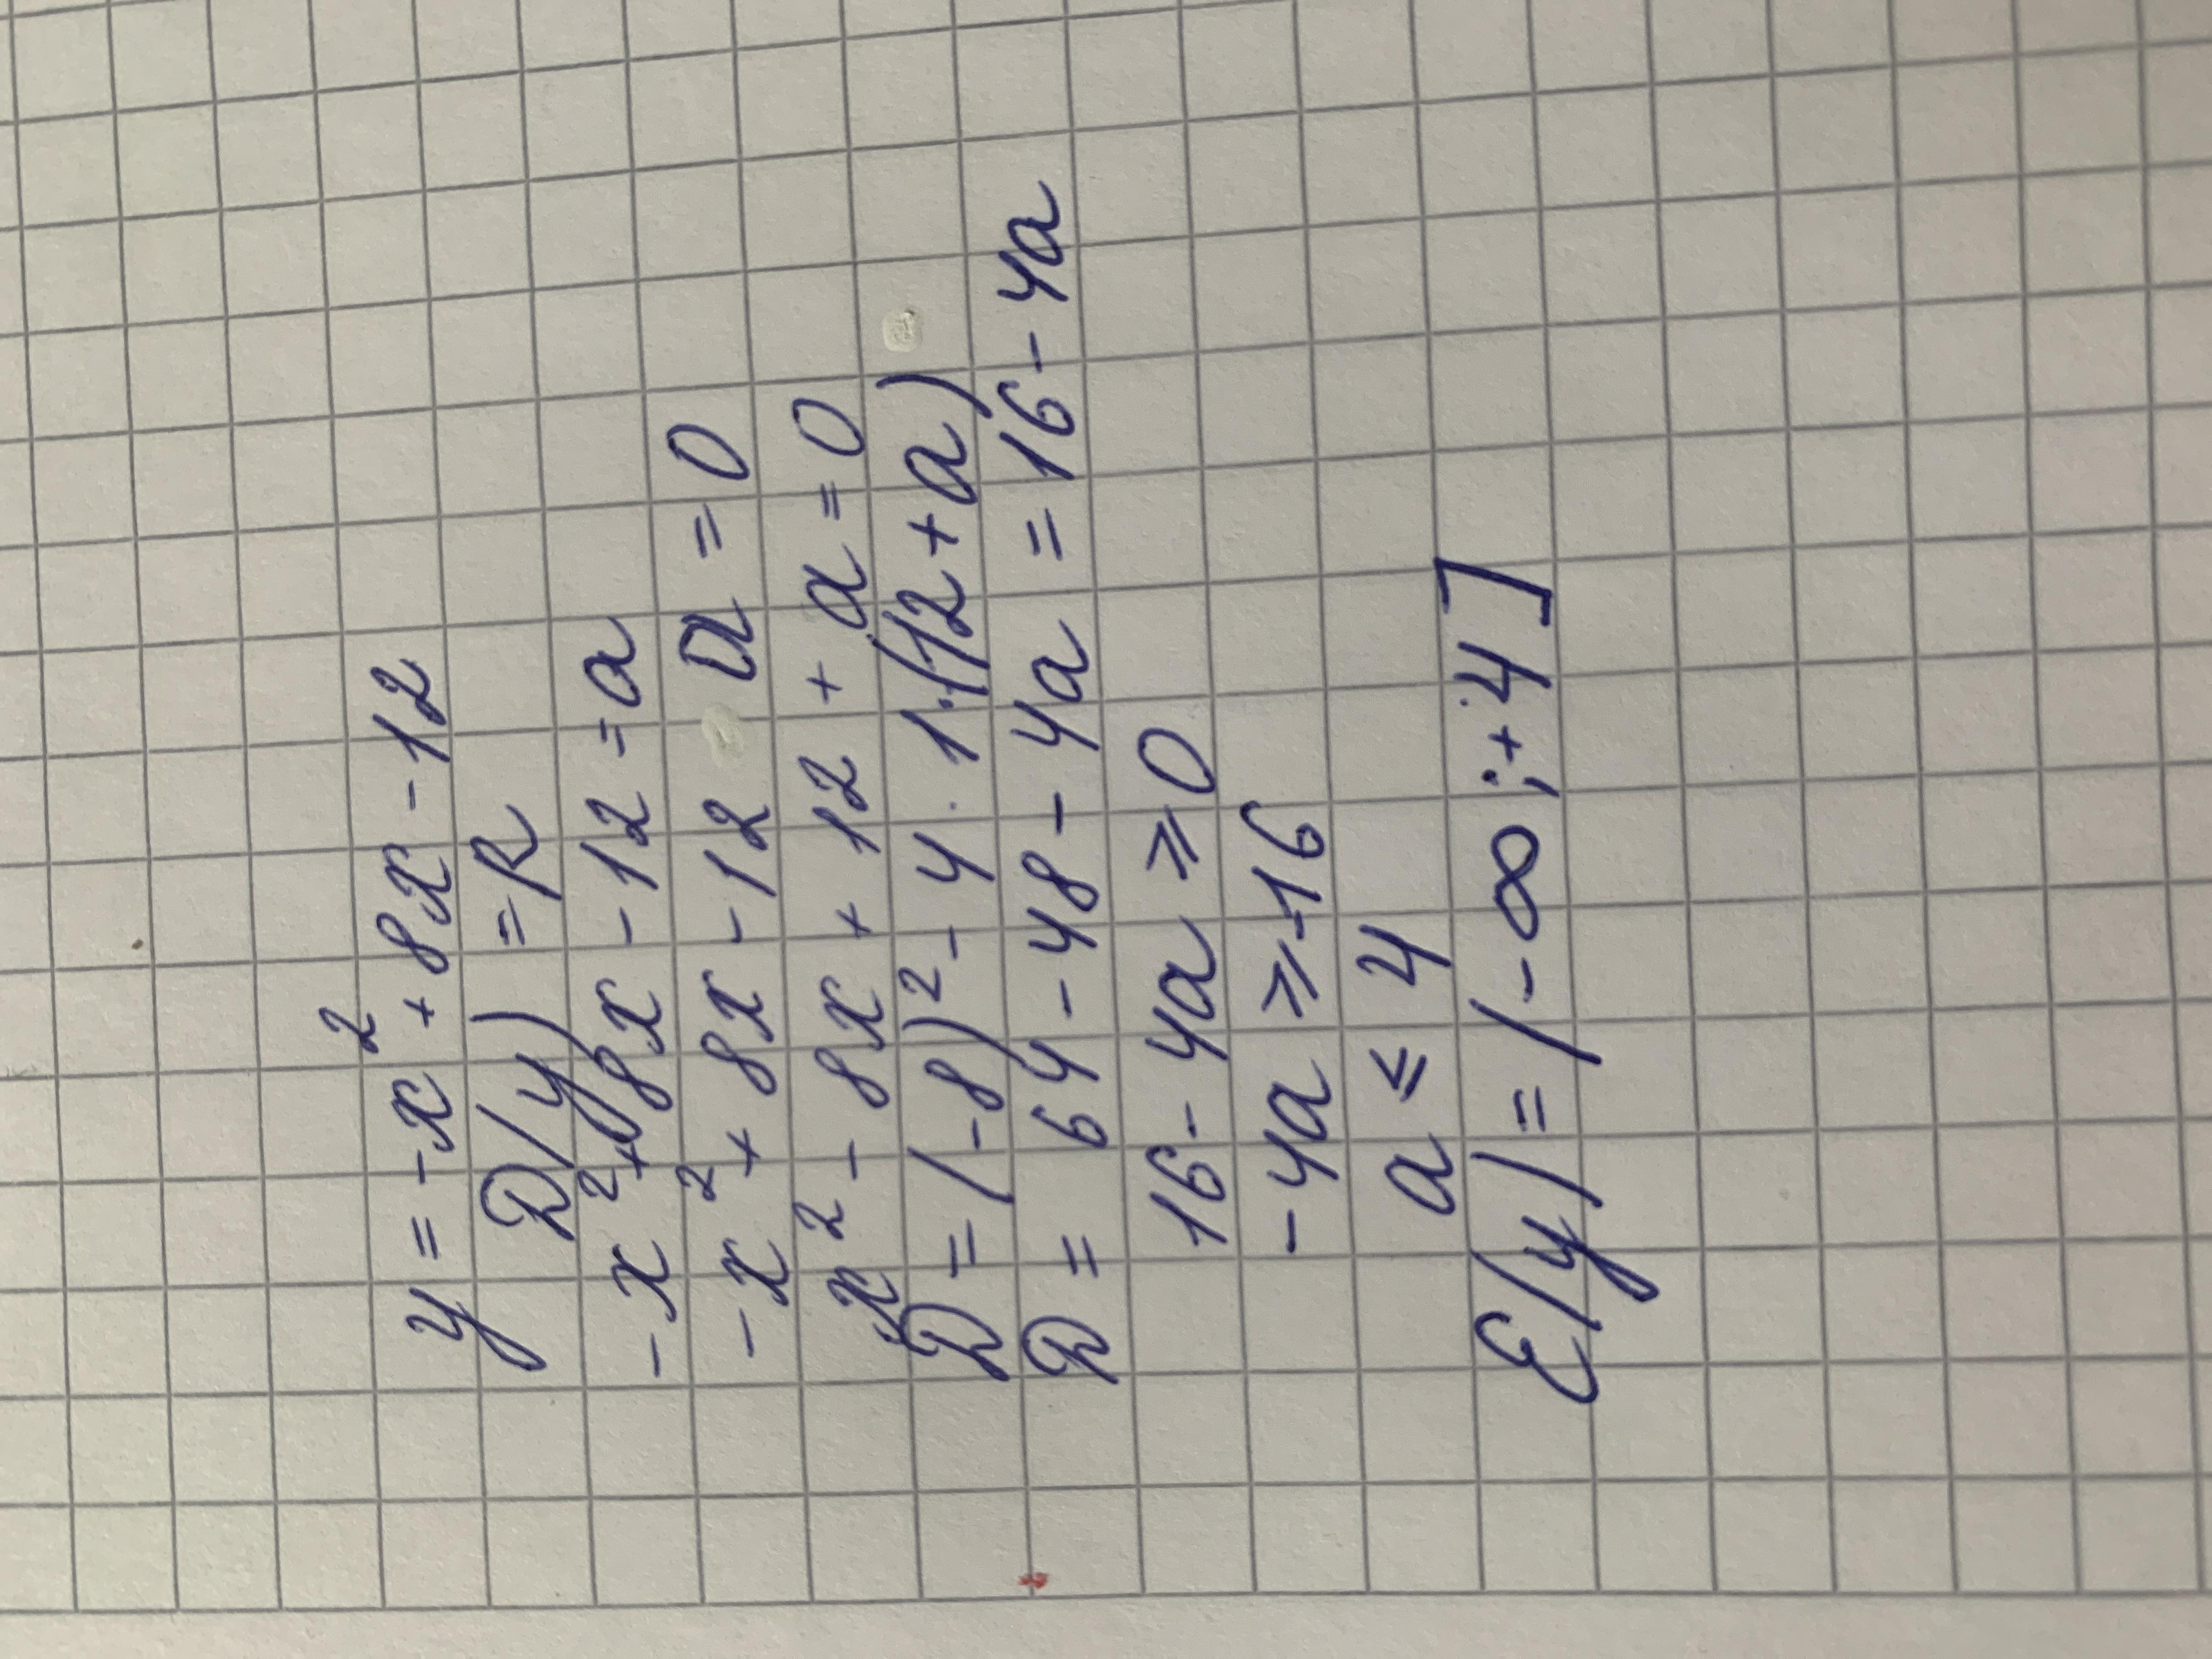 y = -x² + 8x - 12
D(y) = R
-x² + 8x - 12 = a
-x² + 8x - 12 a = 0
x² - 8x + 12 + a = 0
D = (-8)² - 4 · 1 · (12 + a)
D = 64 - 48 - 4a = 16 - 4a
16 - 4a ⩾ 0
-4a ⩾ -16
a ⩽ 4
E(y) = (-∞; +4]